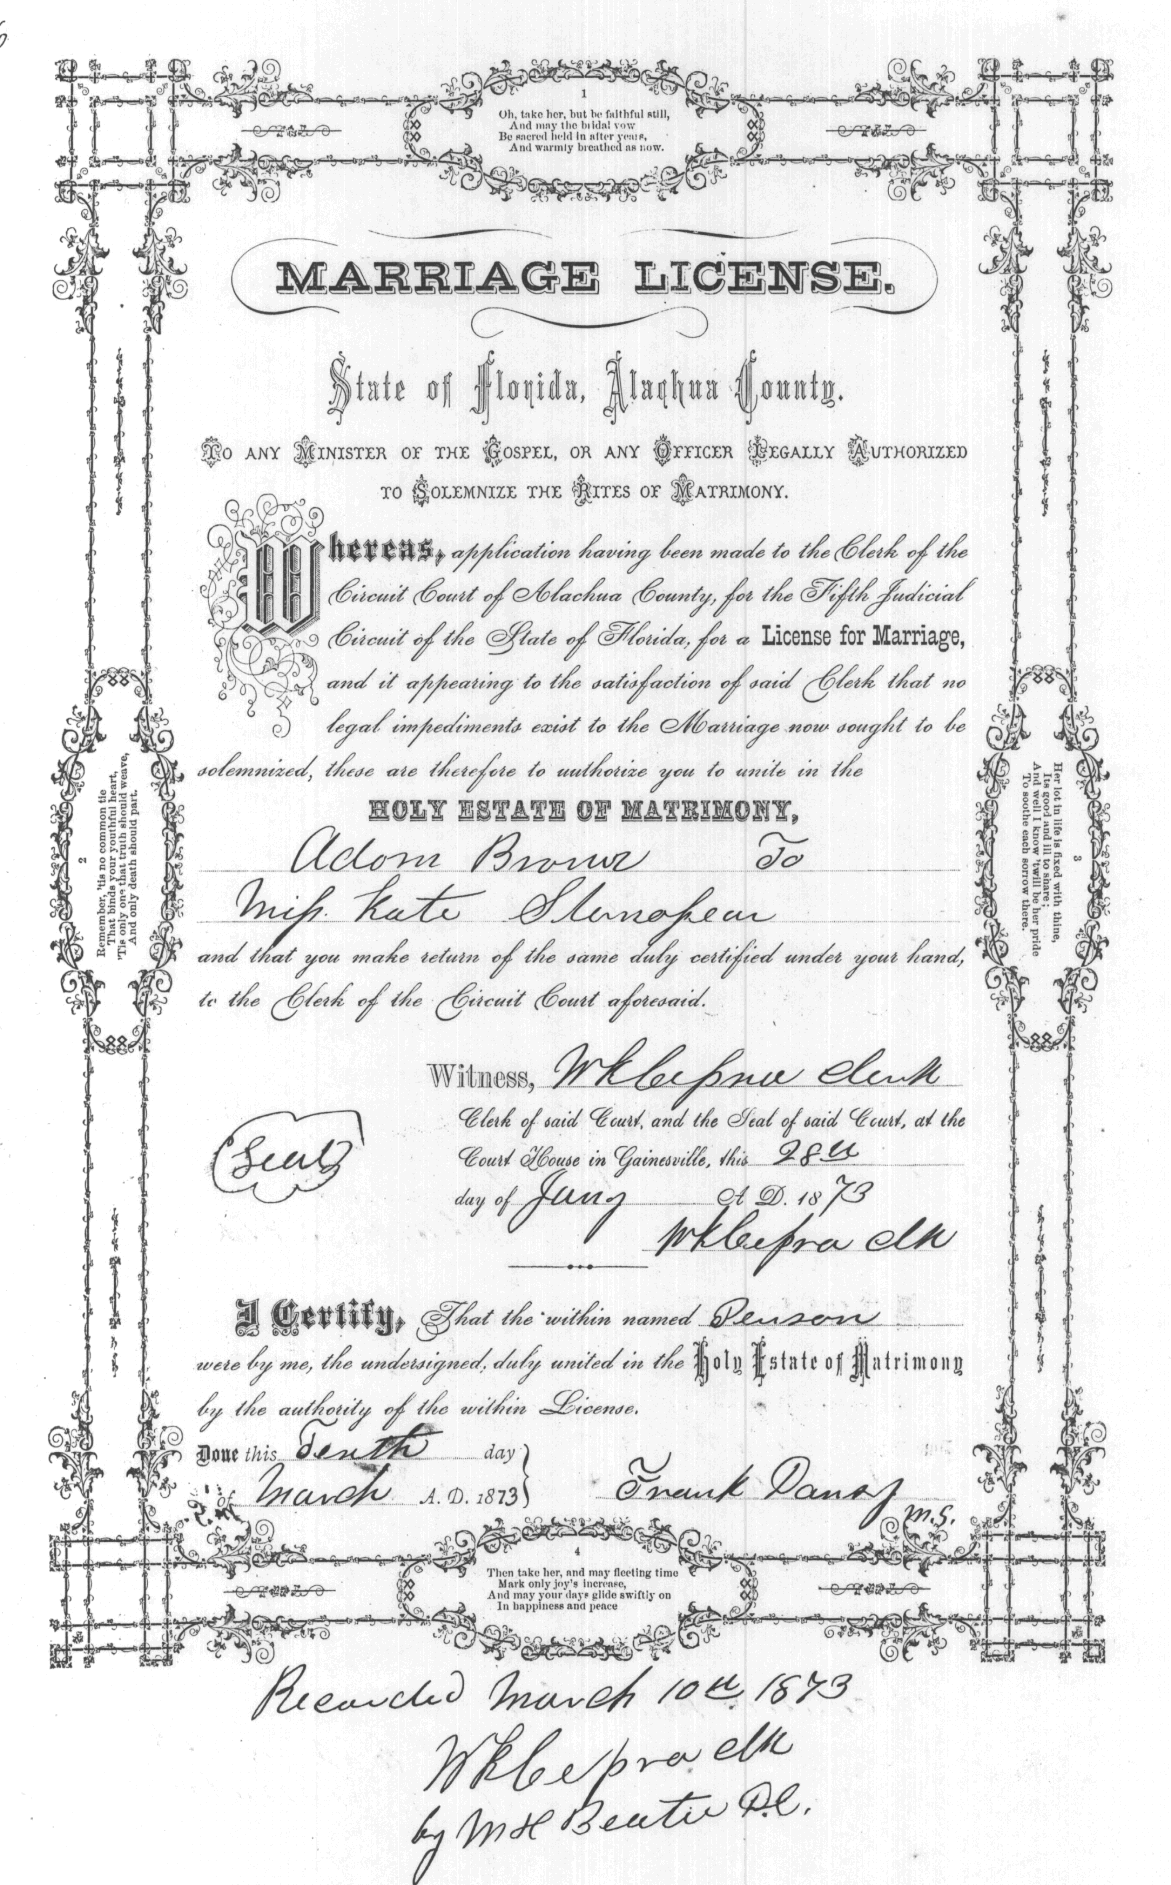 1
Oh, take her, but be faithful still,
And may the bridal vow
Be sacred held in after years,
And warmly breathed as now.
MARRIAGE LICENSE.
State of Florida, Alachua County.
TO ANY MINISTER OF THE GOSPEL, OR ANY OFFICER LEGALLY AUTHORIZED
TO SOLEMNIZE THE RITES OF MATRIMONY.
Whereas, application having been made to the Clerk of the
Circuit Court of Alachua County, for the Fifth Judicial
Circuit of the State of Florida, for a License for Marriage,
and it appearing to the satisfaction of said Clerk that no
legal impediments exist to the Marriage now sought to be
solemnized, these are therefore to authorize you to unite in the
HOLY ESTATE OF MATRIMONY,
Adom Brown To
Miss. Kate
and that you make return of the same duly certified under your hand,
to the Clerk of the Circuit Court aforesaid.
2
Remember, 'tis no common tie
That binds your youthful heart,
'Tis only one that truth should weave,
And only death should part.
3
Her lot in life is fixed with thine,
Its good and ill to share;
And well I know 'twill be her pride
To soothe each sorrow there.
Witness, WK Cessna Clerk
Clerk of said Court, and the Seal of said Court, at the
Court House in Gainesville, this 28th
day of Jany A. D. 1873
WK Cessna Clk
(Seal)
I Certify, That the within named Person
were by me, the undersigned, duly united in the Holy Estate of Matrimony
by the authority of the within License.
Done this Tenth day
of March A. D. 1873
Frank
M.G.
4
Then take her, and may fleeting time
Mark only joy's increase,
And may your days glide swiftly on
In happiness and peace
Recorded March 10th 1873
WK Cessna Clk
by M H Beatie D.C.